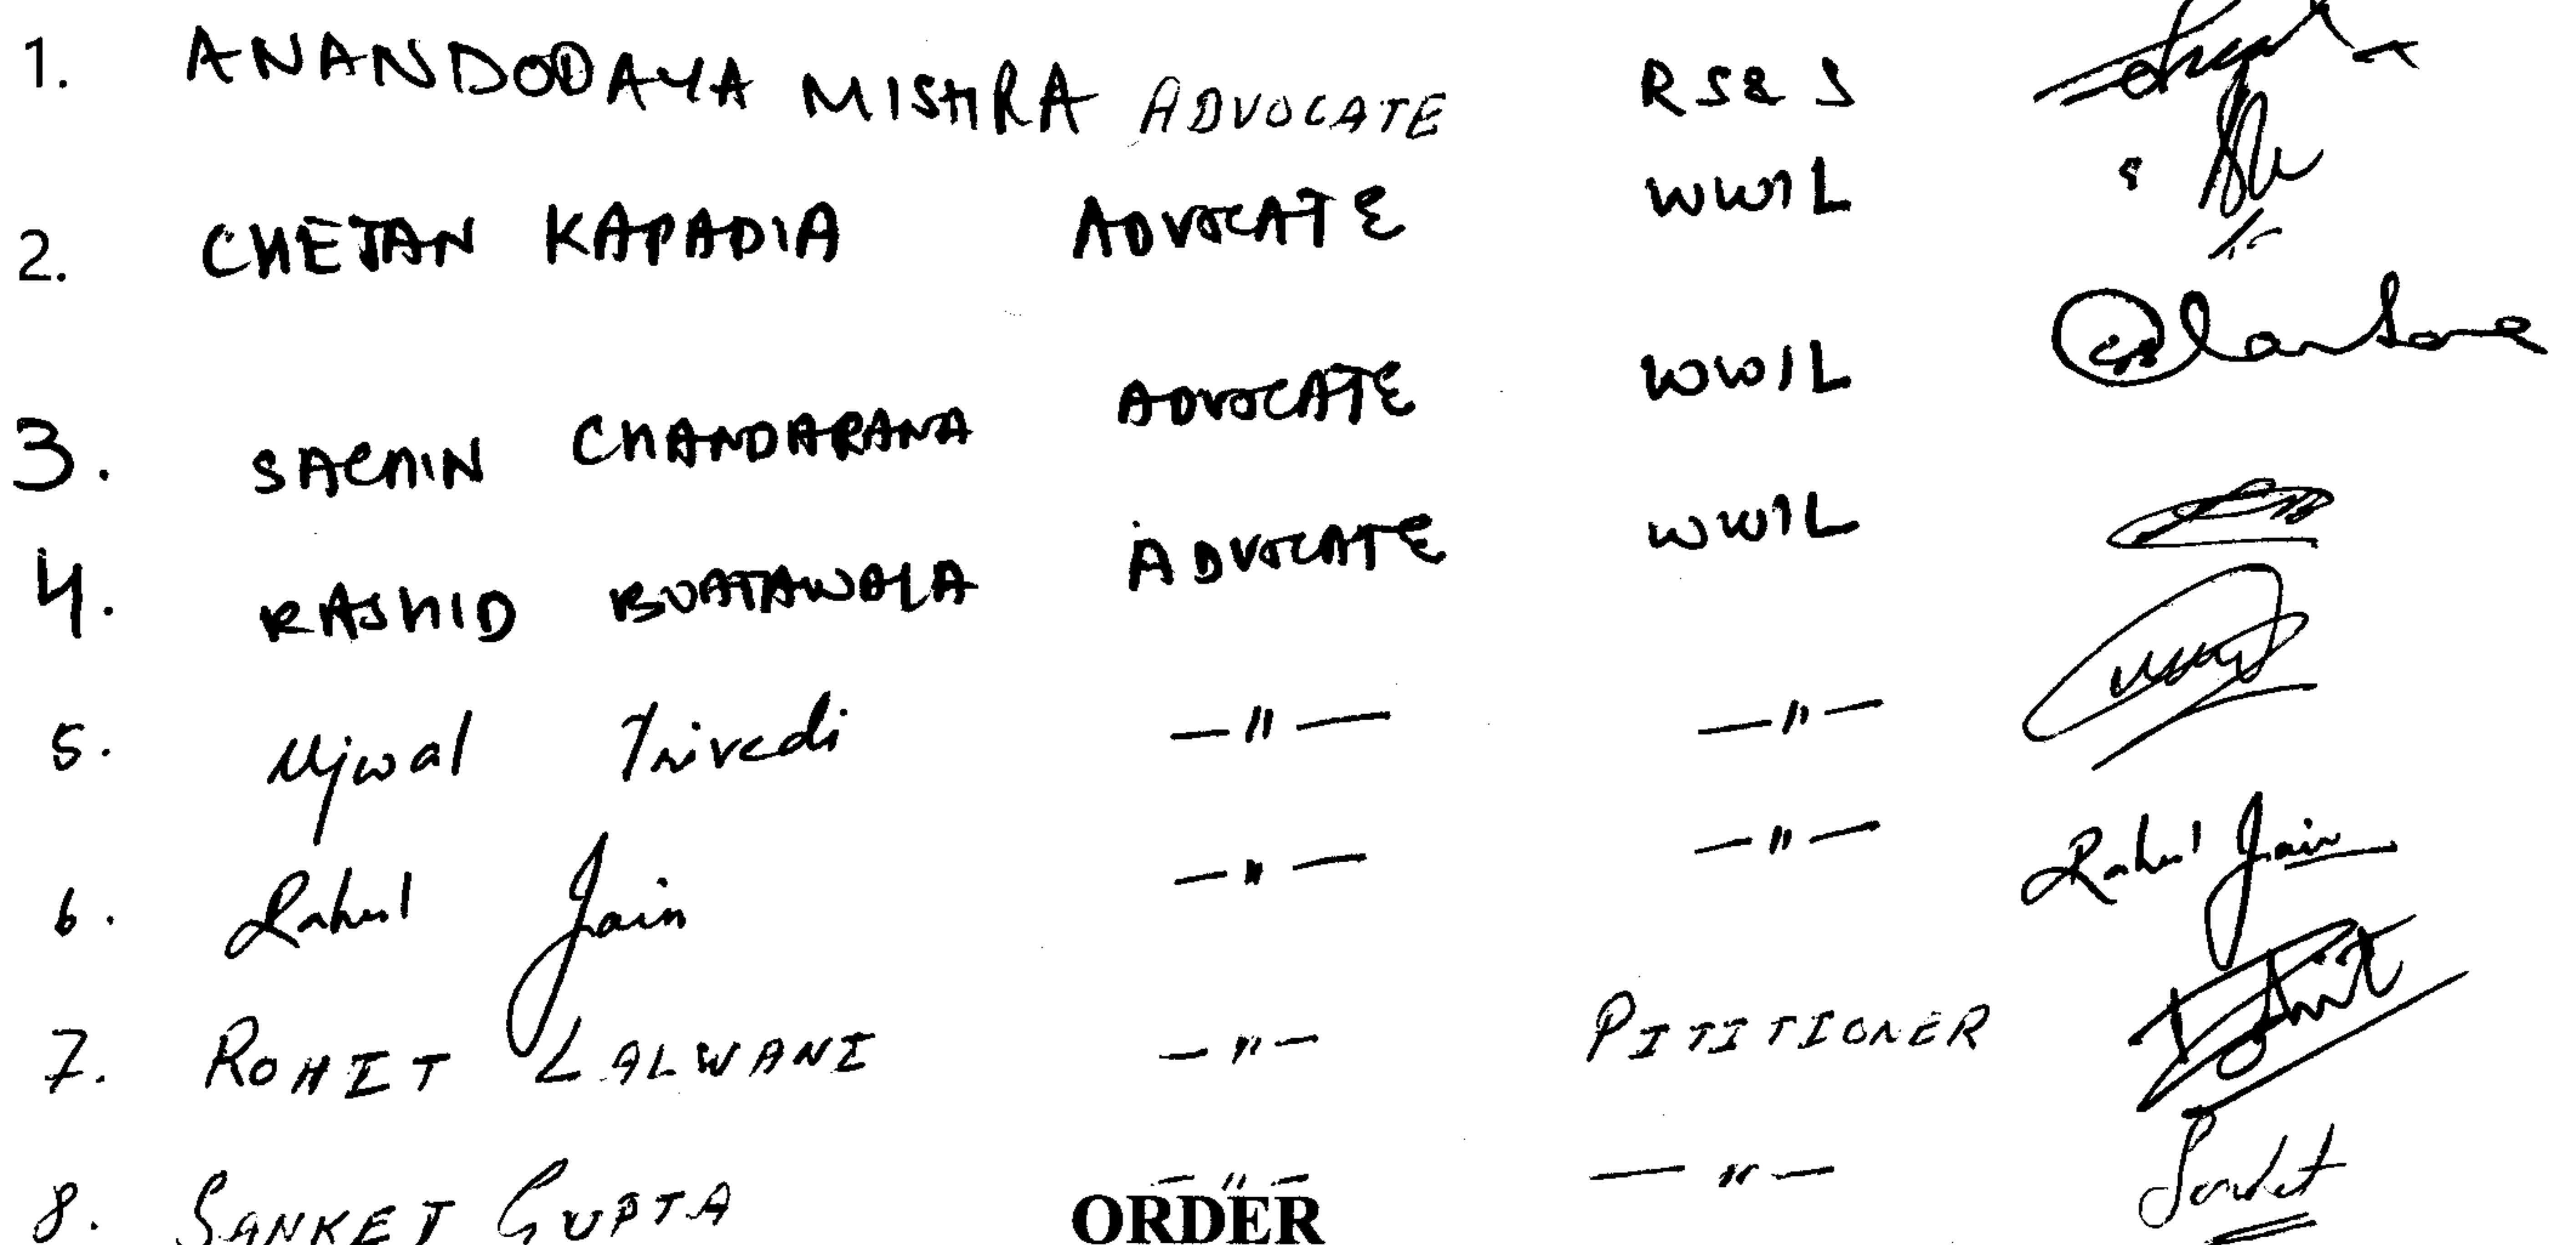 1. ANANDODAYA MISHRA ADVOCATE RS& S
2. CHETAN KAPADIA ADVOCATE WWIL
3. SACHIN CHANDARANA ADVOCATE WWIL
4. RASHID BOATAWALA ADVOCATE WWIL
5. Ujwal Trivedi —"— —"—
6. Rahul Jain —"— —"— Rahul Jain
7. ROHIT LALWANI —"— PITITIONER Rohit
8. SANKET GUPTA —"— —"— Sanket
ORDER